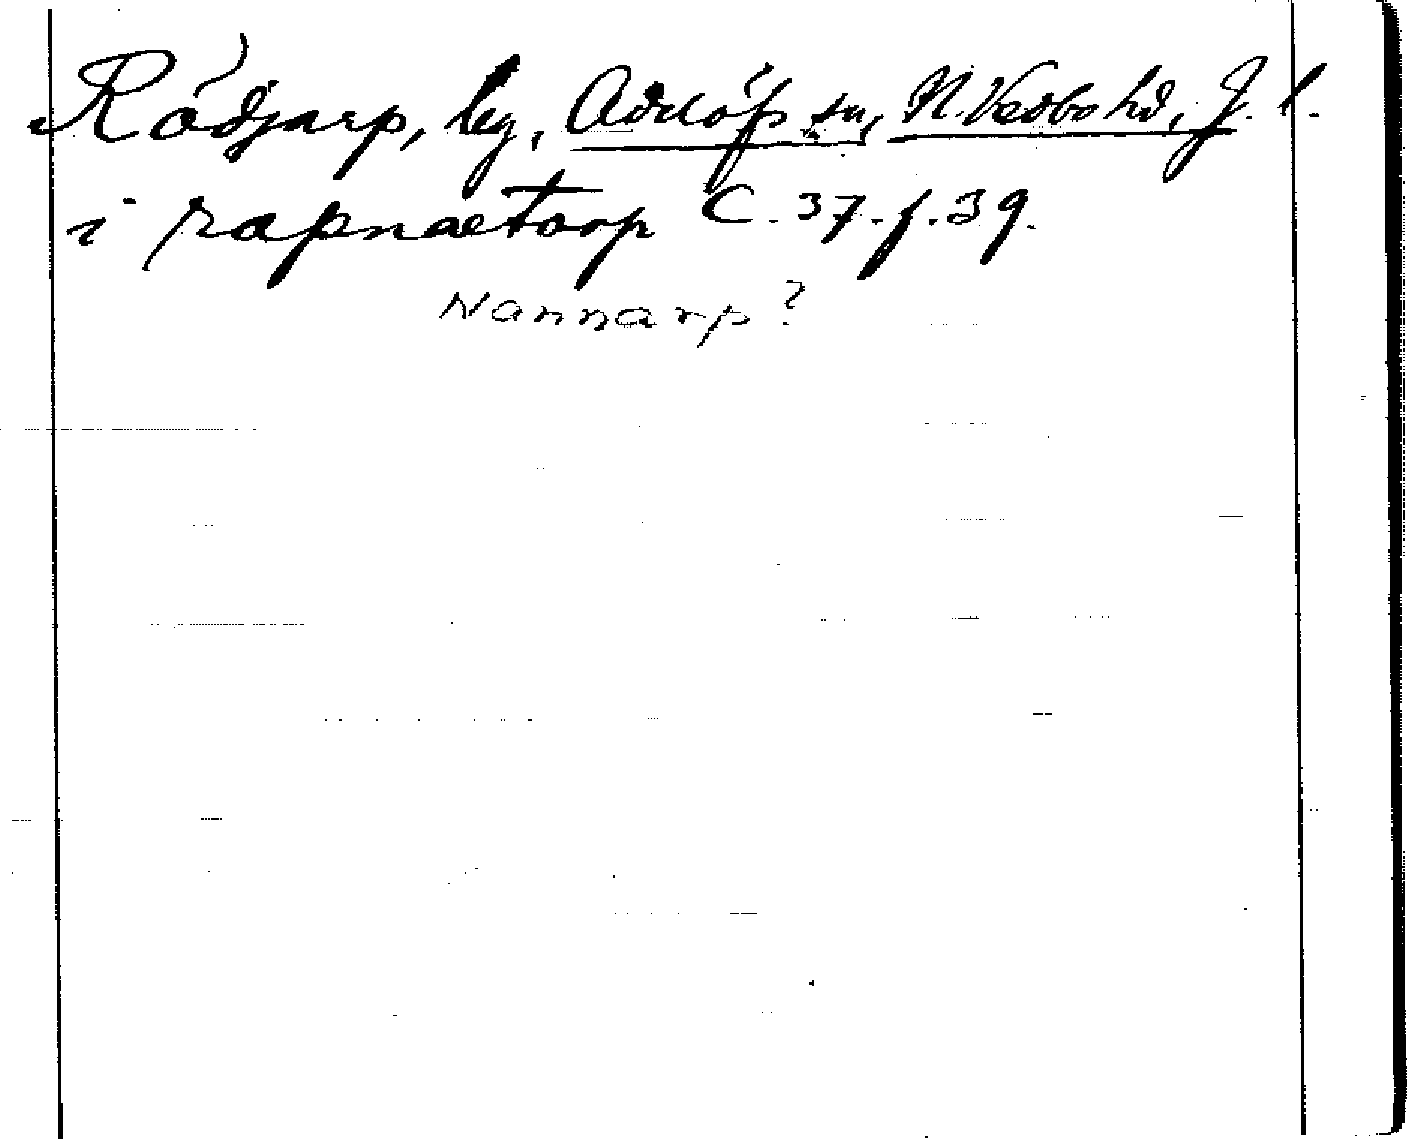 Rödjarp, by, Adelöfs sn, N. Vedbo hd, J. l.
i rapnaetorp C. 37. f. 39.
Nannarp?